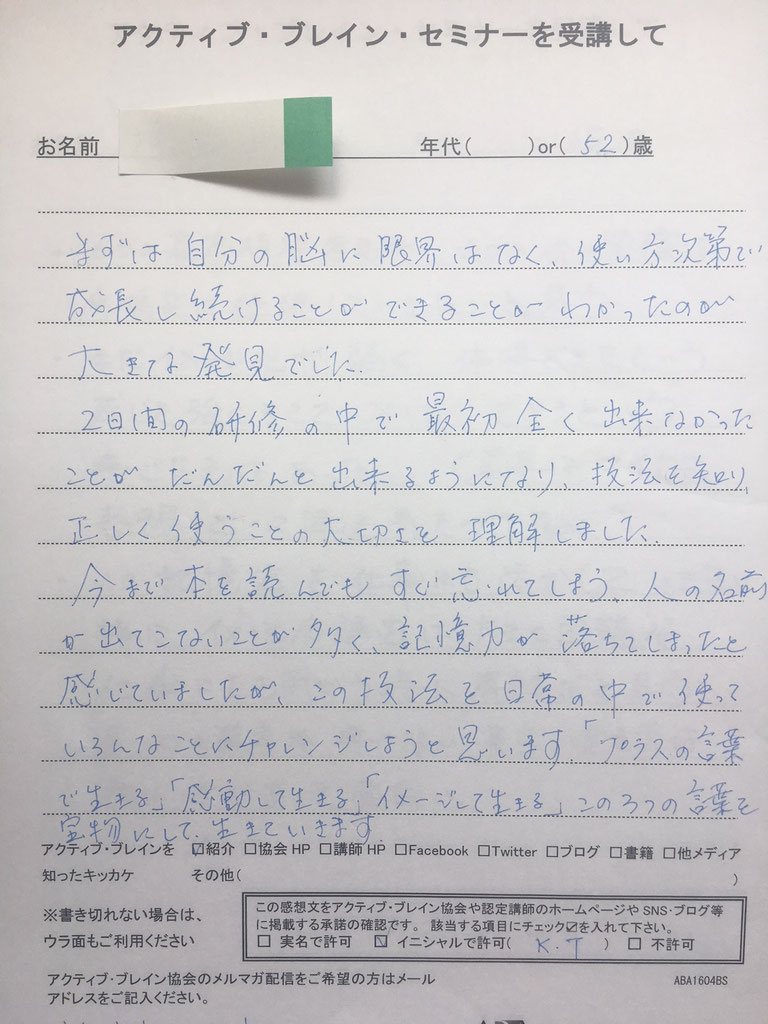 アクティブ・ブレイン・セミナーを受講して
お名前 年代( )or( 52 )歳
まずは自分の脳に限界はなく、使い方次第で
成長し続けることができることがわかったのが
大きな発見でした.
2日間の研修の中で最初全く出来なかった
ことがだんだんと出来るようになり、技法を知り、
正しく使うことの大切さを理解しました.
今まで本を読んでもすぐ忘れてしまう、人の名前
が出てこないことが多く、記憶力が落ちてしまったと
感じていましたが、この技法を日常の中で使って
いろんなことにチャレンジしようと思います.「プラスの言葉
で生きる」「感動して生きる」「イメージして生きる」この3つの言葉を
宝物にして生きていきます.
アクティブ・ブレインを ☑紹介 □協会HP □講師HP □Facebook □Twitter □ブログ □書籍 □他メディア
知ったキッカケ その他( )
※書き切れない場合は、
ウラ面もご利用ください
この感想文をアクティブ・ブレイン協会や認定講師のホームページやSNS・ブログ等
に掲載する承諾の確認です。 該当する項目にチェック☑を入れて下さい。
□ 実名で許可 ☑ イニシャルで許可( K.T ) □ 不許可
アクティブ・ブレイン協会のメルマガ配信をご希望の方はメール
アドレスをご記入ください。
ABA1604BS